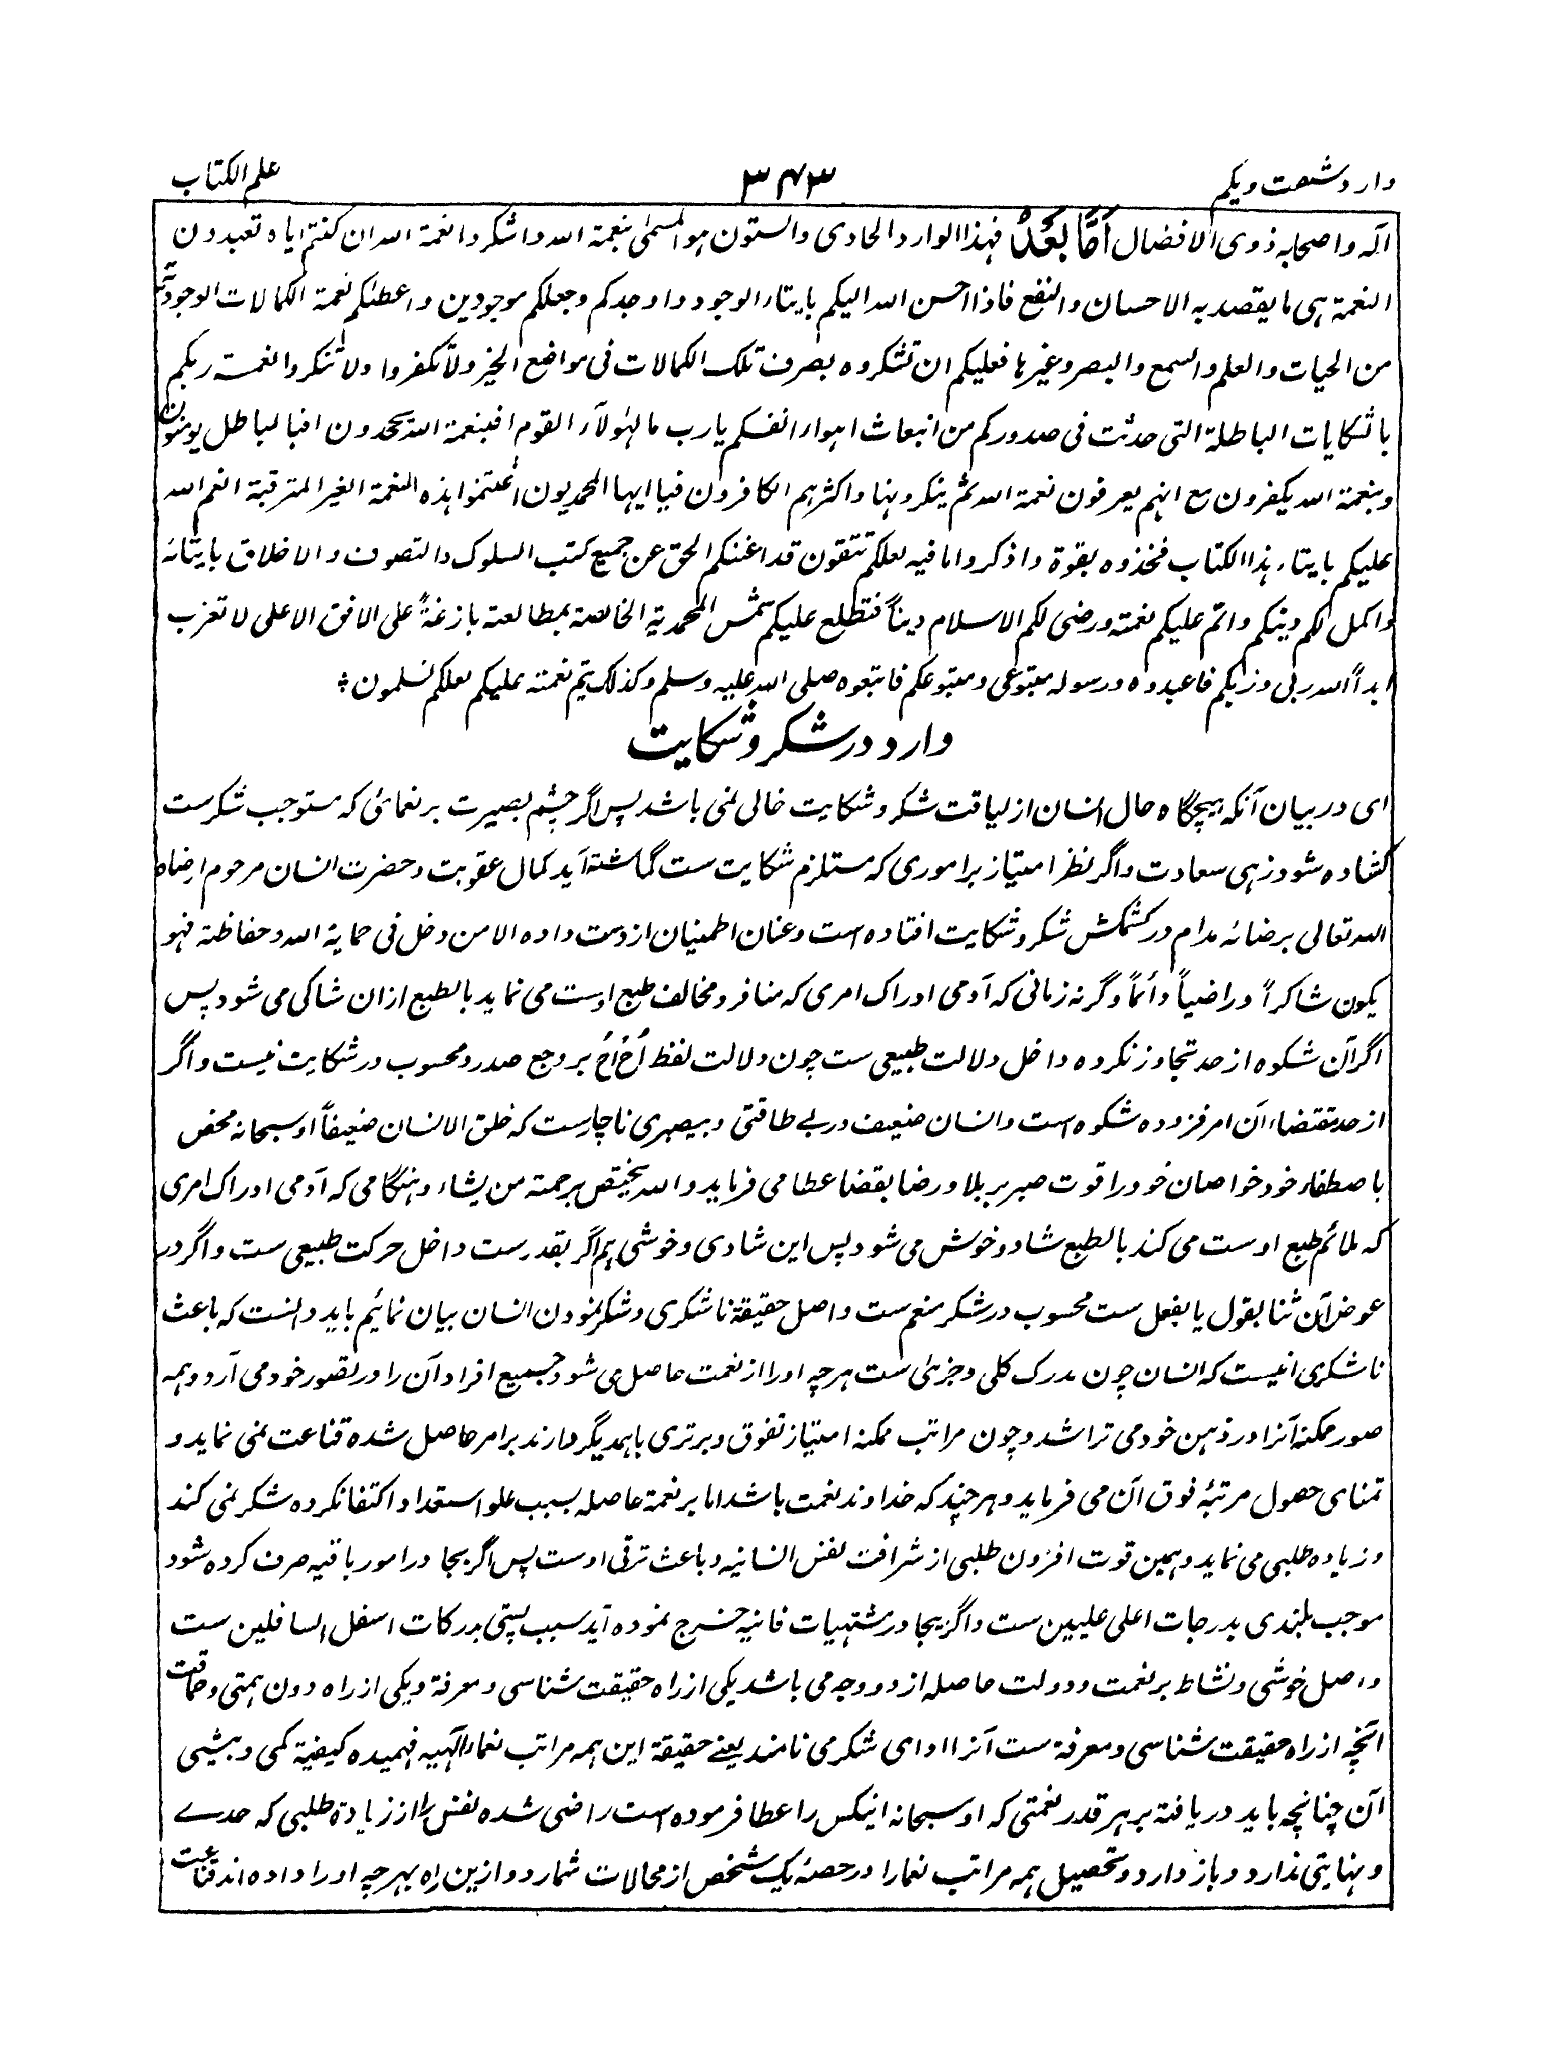 وارد شصت ویکم ۳۴۳ علم الکتاب
آله واصحابه ذوی الافضال اَمَّا بَعْدُ فهذا الوارد الحادی والستون هو المسمی بنعمة الله واشکروا نعمة الله ان کنتم ایاه تعبدون
النعمة هی ما یقصد به الاحسان والنفع فاذا احسن الله الیکم بایتاء الوجود واوجدکم وجعلکم موجودین واعطٰکم نعمة الکمالات الوجودیّة
من الحیات والعلم والسمع والبصر وغیرها فعلیکم ان تشکروه بصرف تلک الکمالات فی مواضع الخیر ولا تکفروا ولا تنکروا نعمة ربکم
بالشکایات الباطلة التی حدثت فی صدورکم من انبعاث اهواء انفسکم یارب ما لهٰولآء القوم افبنعمة الله یجحدون افبالباطل یومنون
وبنعمة الله یکفرون مع انهم یعرفون نعمة الله ثم ینکرونها واکثرهم الکافرون فیا ایها المحمدیون اغتنموا هذه النعمة الغیر المترقبة انعم الله
علیکم بایتاء هذا الکتاب فخذوه بقوة واذکروا ما فیه لعلکم تتقون قد اغنٰکم الحق عن جمیع کتب السلوک والتصوف والاخلاق بایتائه
واکمل لکم دینکم واتم علیکم نعمته ورضی لکم الاسلام دیناً فتطلع علیکم شمس المحمدیة الخالصة بمطالعته بازغةً علی الافق الاعلی لا تغرب
ابداً الله ربی وربکم فاعبدوه ورسوله متبوعی ومتبوعکم فاتبعوه صلی الله علیه وسلم وکذلک یتم نعمته علیکم لعلکم تسلمون ؞
وارد در شکر وشکایت
ای در بیان آنکه هیچگاه حال انسان از لیاقت شکر وشکایت خالی نمی باشد پس اگر چشم بصیرت بر نعمائ که مستوجب شکرست
کشاده شود زهی سعادت واگر نظر امتیاز بر اموری که مستلزم شکایت ست گماشته آید کمال عقوبت وحضرت انسان مرحوم ارضاه
الله تعالی برضائه مدام در کشمکش شکر وشکایت افتاده است وعنان اطمینان از دست داده الا من دخل فی حمایة الله وحفاظته فهو
یکون شاکراً وراضیاً دائماً وگرنه زمانی که آدمی ادراک امری که منافر ومخالف طبع اوست می نماید بالطبع ازان شاکی می شود پس
اگر آن شکوه از حد تجاوز نکرده داخل دلالت طبیعی ست چون دلالت لفظ اُخ اُخ بر وجع صدر ومحسوب در شکایت نیست واگر
از حد مقتضاء آن امر فزوده شکوه است وانسان ضعیف در بے طاقتی وبیصبری ناچارست که خلق الانسان ضعیفاً او سبحانه محض
باصطفاء خود خواصان خود را قوت صبر بر بلا ورضا بقضا عطا می فرماید والله یختص برحمته من یشاء وهنگامی که آدمی ادراک امری
که ملائم طبع اوست می کند بالطبع شاد وخوش می شود پس این شادی وخوشی هم اگر بقدرست داخل حرکت طبیعی ست واگر در
عوض آن ثنا بقول یا بفعل ست محسوب در شکر منعم ست واصل حقیقة ناشکری وشکر نمودن انسان بیان نمائیم باید دانست که باعث
ناشکری اینست که انسان چون مدرک کلی وجزئی ست هرچه او را از نعمت حاصل می شود جمیع افراد آن را در تصور خود می آرد وهمه
صور ممکنه آنرا در ذهن خود می تراشد وچون مراتب ممکنه امتیاز تفوق وبرتری باهمدیگر دارند بر امر حاصل شده قناعت نمی نماید و
تمنای حصول مرتبۀ فوق آن می فرماید وهر چند که خداوند نعمت باشد اما بر نعمة حاصله بسبب علو استعداد اکتفا نکرده شکر نمی کند
وزیاده طلبی می نماید وهمین قوت افزون طلبی از شرافت نفس انسانیه وباعث ترقی اوست پس اگر بجا در امور باقیه صرف کرده شود
موجب بلندی بدرجات اعلی علیین ست واگر بیجا در مشتهیات فانیه خرج نموده آید سبب پستی بدرکات اسفل السافلین ست
واصل خوشی ونشاط بر نعمت ودولت حاصله از دو وجه می باشد یکی از راه حقیقت شناسی ومعرفة ویکی از راه دون همتی وحماقت
آنچه از راه حقیقت شناسی ومعرفة ست آنرا ادای شکر می نامند یعنے حقیقة این همه مراتب نعماء الٓهیه فهمیده کیفیة کمی وبیشی
آن چنانچه باید دریافته بر هر قدر نعمتی که او سبحانه اینکس را عطا فرموده است راضی شده نفس را از زیادة طلبی که حدے
ونهایتی ندارد باز دارد وتحصیل همه مراتب نعما را در حصۀ یک شخص از محالات شمارد وازین راه بهرچه او را داده اند قناعت